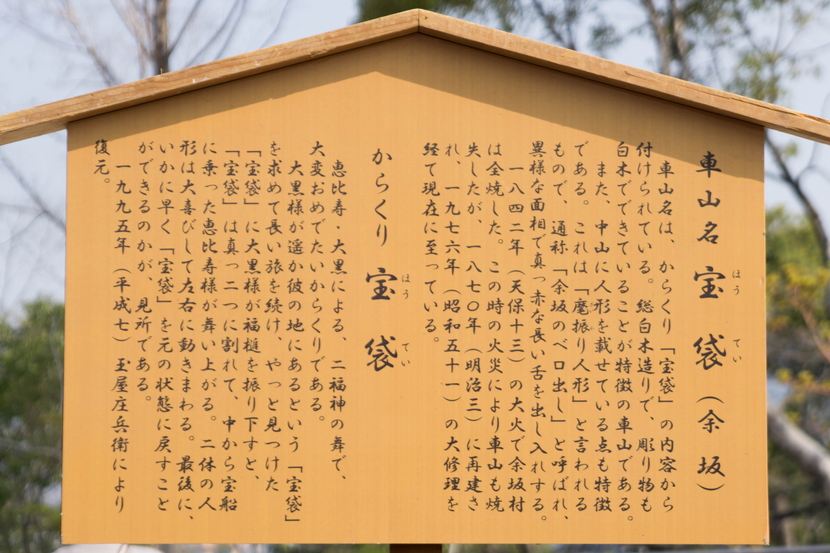 車山名 宝袋（余坂）
ほうてい
車山名は、からくり「宝袋」の内容から
付けられている。総白木造りで、彫り物も
白木でできていることが特徴の車山である。
また、中山に人形を載せている点も特徴
である。これは「麾振り人形」と言われる
もので、通称「余坂のベロ出し」と呼ばれ、
異様な面相で真っ赤な長い舌を出し入れする。
一八四二年（天保十三）の大火で余坂村
は全焼した。この時の火災により車山も焼
失したが、一八七〇年（明治三）に再建さ
れ、一九七六年（昭和五十一）の大修理を
経て現在に至っている。
からくり 宝袋
ほうてい
恵比寿・大黒による、二福神の舞で、
大変おめでたいからくりである。
大黒様が遥か彼の地にあるという「宝袋」
を求めて長い旅を続け、やっと見つけた
「宝袋」に大黒様が福槌を振り下すと、
「宝袋」は真っ二つに割れて、中から宝船
に乗った恵比寿様が舞い上がる。二体の人
形は大喜びして左右に動きまわる。最後に、
いかに早く「宝袋」を元の状態に戻すこと
ができるのかが、見所である。
一九九五年（平成七）玉屋庄兵衛により
復元。